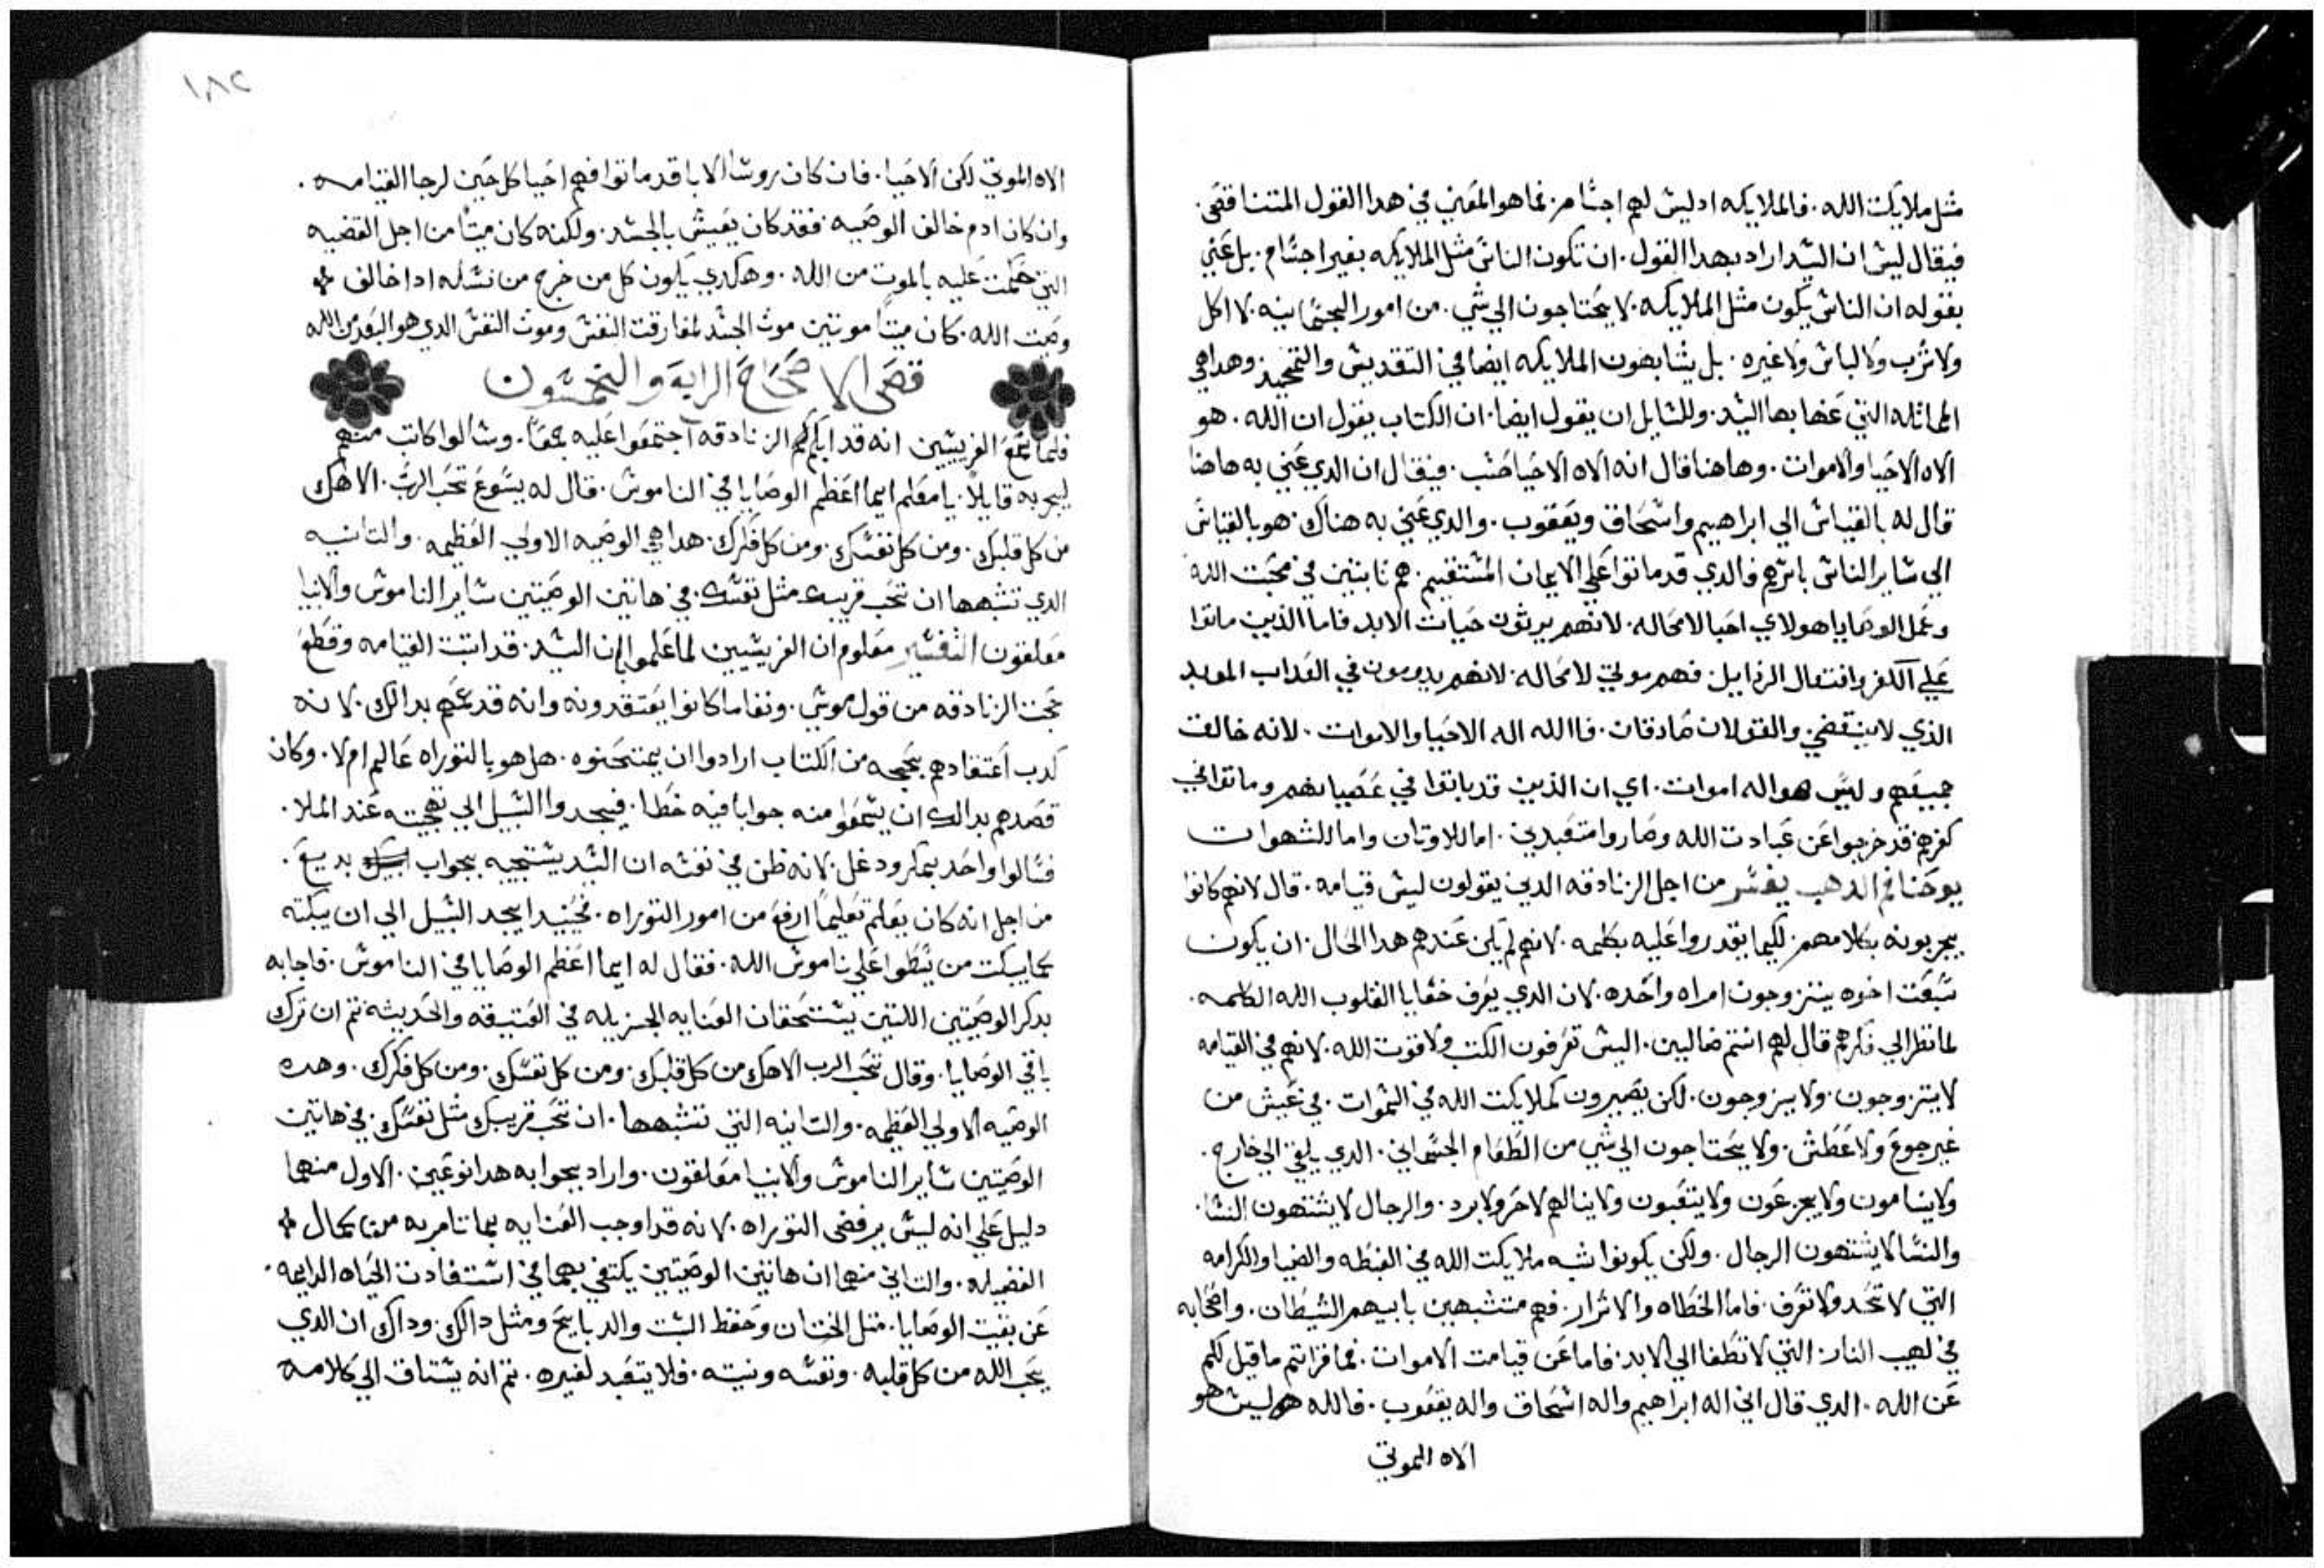 مثل ملايكت الله. فالملايكه ادليس لهم اجسام. فما هو المعني في هدا القول المتناقض.
فيقال ليس ان السيد اراد بهدا القول. ان تكون الناس مثل الملايكه بغير اجسام. بل عني
بقوله ان الناس يكون مثل الملايكه. لا يحتاجون الي شي. من امور الجسمانيه. لا اكل
ولا شرب ولا لباس ولا غيره. بل يشابهون الملايكه ايضا في التقديس والتمجيد. وهدا هي
المماثله التي عنها بها السيد. وللسايل ان يقول ايضا. ان الكتاب يقول ان الله. هو
الاه الاحيا والاموات. وهاهنا قال انه الاه الاحيا حسب. فيقال ان الدي عني به هاهنا
قال له بالقياس الي ابراهيم واسحاق ويعقوب. والدي عني به هناك. هو بالقياس
الي ساير الناس باسرهم فالدي قد ماتوا علي الايمان المستقيم. هم تابتين في محبت الله
وعمل الوصايا هولاي احيا لامحاله. لانهم يرثون حيات الابد فاما الذين ماتوا
علي الكفر وافتعال الرذايل. فهم موتي لامحاله. لانهم يدومون في العداب الموبد
الذي لا ينقضي. والقولان صادقان. فالله اله الاحيا والاموات. لانه خالق
جميعهم وليس هو اله اموات. اي ان الذين قد ماتوا في عصيانهم وماتوا في
كفرهم قد خرجوا عن عبادت الله وصاروا متعبدين. اما للاوتان واما للشهوات
يوحنا فم الدهب يفسر من اجل الزنادقه الدين يقولون ليس قيامه. قال لانهم كانوا
يجربونه بكلامهم. لكيما يقدروا عليه بكلمه. لانهم لم يكن عندهم هدا الحال. ان يكون
سبعت اخوه يتزوجون امراه واحده. لان الدي يعرف خفايا القلوب الله الكلمه.
لما نظر الي فكرهم قال لهم استم ضالين. اليس تعرفون الكتب ولا قوت الله. لانهم في القيامه
لا يتزوجون. ولا يزوجون. لكن يصيرون كملايكت الله في السموات. في عيش من
غير جوع ولا عطش. ولا يحتاجون الي شي من الطعام الجسماني. الدي يلقي الي خارج.
ولا ينامون ولا يجزعون ولا يتعبون ولا ينالهم لا حر ولا برد. والرجال لا يشتهون النسا.
والنسا لا يشتهون الرجال. ولكن يكونوا شبه ملايكت الله في الغبطه والضيا والكرامه
التي لا تحد ولا تعرف. فاما الخطاه والاشرار. فهم متشبهين بابيهم الشيطان. واصحابه
في لهيب النار. التي لا تطفا الي الابد. فاما عن قيامت الاموات. فما قراتم ما قيل لكم
عن الله. الدي قال اني اله ابراهيم واله اسحاق واله يعقوب. فالله ليس هو
الاه الموتي
١٨٢
الاه الموتي لكن الاحيا. فان كان روسا الابا قد ماتوا فهم احيا كل حين لرجا القيامه.
وان كان ادم خالف الوصيه. فقد كان يعيش بالجسد. ولكنه كان ميتا من اجل القضيه
التي حكمت عليه بالموت من الله. وهكدي يكون كل من خرج من نسله ادا خالف
وصيت الله. كان ميتا موتتين موت الجسد لمفارقت النفس وموت النفس الدي هو البعد من الله
قصي الاصحاح الرابة والخمسون
فلما سمع الفريسين انه قد ابكم الزنادقه اجتمعوا عليه جمعا. وسالوا كاتب منهم
ليجربه قايلا. يا معلم ايما اعظم الوصايا في الناموس. قال له يسوع تحب الرب. الاهك
من كل قلبك. ومن كل نفسك. ومن كل فكرك. هدا هي الوصيه الاولي العظيمه. والتانيه
الدي تشبهها ان تحب قريبك مثل نفسك. في هاتين الوصيتين ساير الناموس والانبيا
معلقون التفسير معلوم ان الفريسيين لما علموا ان السيد. قد اتبت القيامه وقطع
حجت الزنادقه من قول موسي. ونفا ما كانوا يعتقدونه وانه قد عمهم بدالك. لانه
كدب اعتقادهم بحججه من الكتاب ارادوا ان يمتحنوه. هل هو بالتوراه عالم ام لا. وكان
قصدهم بدالك ان يسمعوا منه جوابا فيه خطا. فيجدوا السبيل الي تهجيته عند الملا.
فسالوا واحد بمكر ودغل. لانه ظن في نفسه ان السيد يستجيبه بجواب بديع.
من اجل انه كان يعلم تعليما ارفع من امور التوراه. فحينيدا يجد السبيل الي ان يبكته
كما يبكت من تسطوا علي ناموس الله. فقال له ايما اعظم الوصايا في الناموس. فاجابه
بدكر الوصيتين اللتين يستحقان العنايه الجزيله في العتيقه والحديثه تم ان ترك
باقي الوصايا. وقال تحب الرب الاهك من كل قلبك. ومن كل نفسك. ومن كل فكرك. وهده
الوصيه الاولي العظيمه. والتانيه التي تتشبهها. ان تحب قريبك مثل نفسك. في هاتين
الوصيتين ساير الناموس والانبيا معلقون. واراد بجوابه هدا نوعين. الاول منهما
دليل علي انه ليس يرفض التوراه. لانه قد اوجب العنايه بما تامر به من كمال
الفضيله. والتاني منهما ان هاتين الوصيتين يكتفي بهما في استفادت الحياه الدايمه.
عن بقيت الوصايا. متل الختان وحفظ السبت والدبايح ومثل دالك. وداك ان الدي
يحب الله من كل قلبه. ونفسه ونيته. فلا يتعبد لغيره. تم انه يشتاق الي كلامه